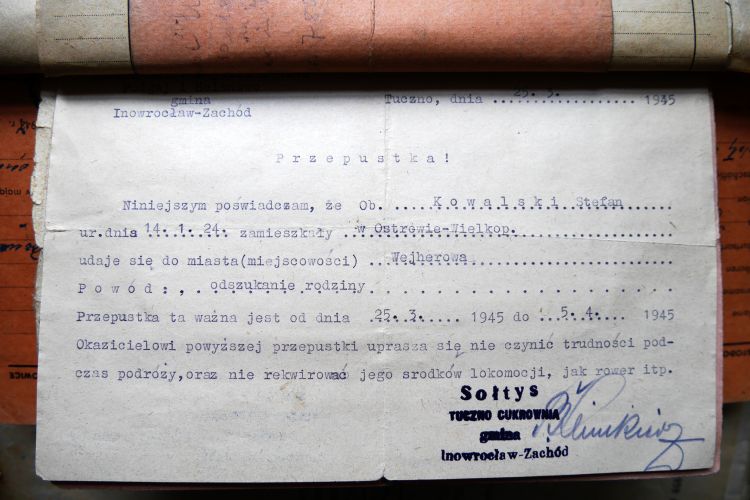 gmina
Inowrocław-Zachód
Tuczno, dnia ... 25. 3. ... 1945
Przepustka!
Niniejszym poświadczam, że Ob. .... Kowalski Stefan ......
ur.dnia 14.1.24. zamieszkały .. w Ostrowie-Wielkop. ......
udaje się do miasta(miejscowości) .. Wejherowa ......
Powód:,. odszukanie rodziny ......
Przepustka ta ważna jest od dnia .. 25. 3. ..... 1945 do ... 5.4. .... 1945
Okazicielowi powyższej przepustki uprasza się nie czynić trudności pod-
czas podróży,oraz nie rekwirować jego srodków lokomocji, jak rower itp.
Sołtys
TUCZNO CUKROWNIA
gmina
Inowrocław-Zachód